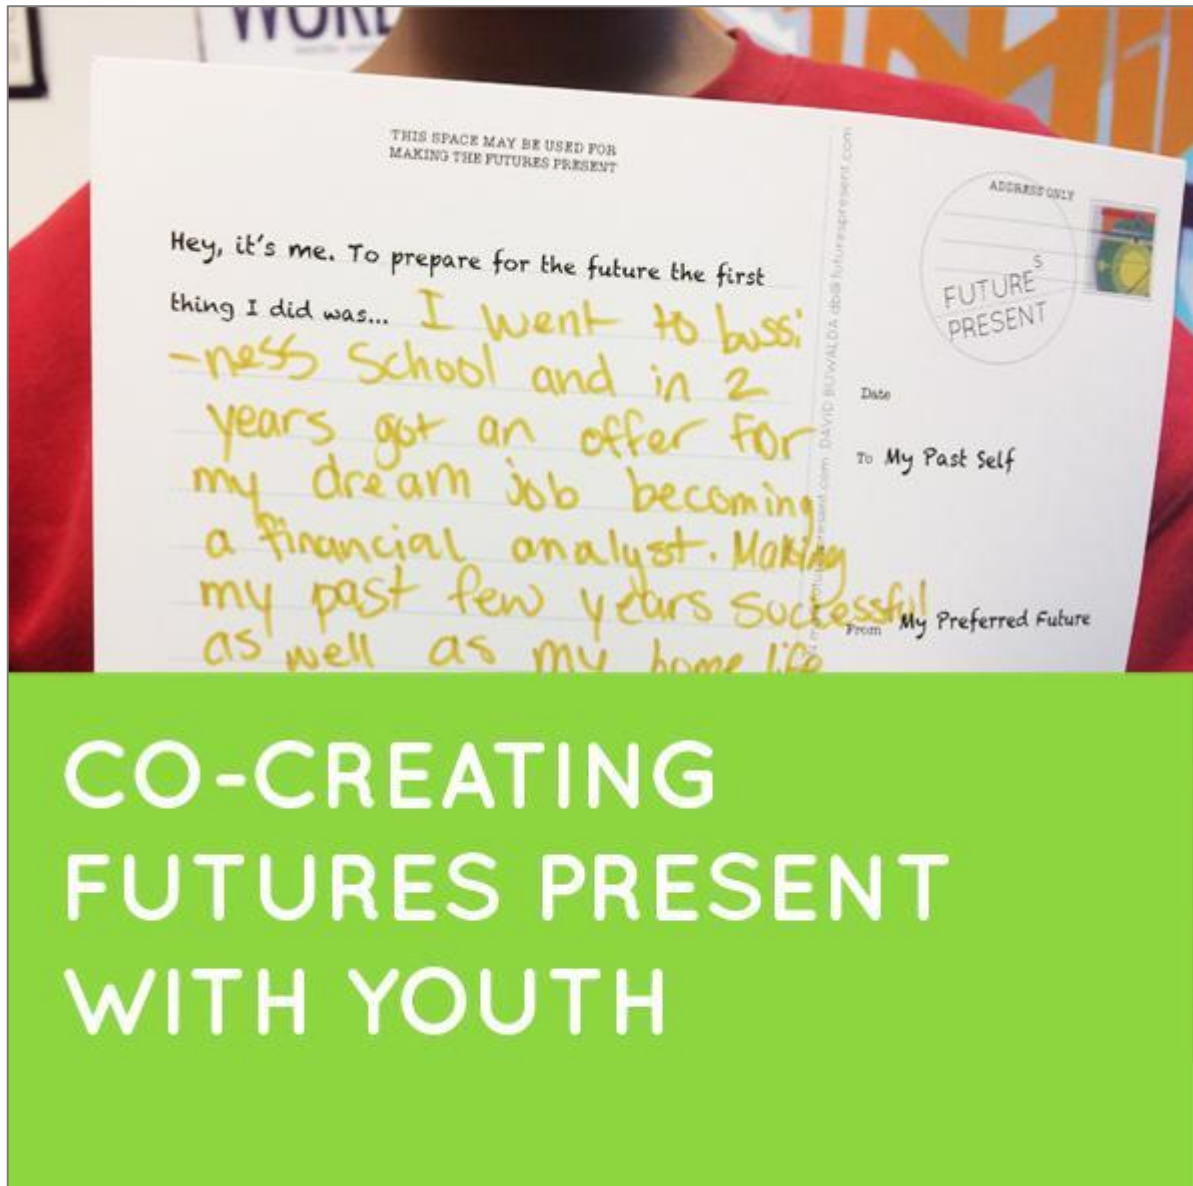 WORL
THIS SPACE MAY BE USED FOR
MAKING THE FUTURES PRESENT
Hey, it's me. To prepare for the future the first
thing I did was... I went to bussi
-ness School and in 2
years got an offer for
my dream job becoming
a financial analyst. Making
my past few years successful
as well as my home life
DAVID BUWALDA db@futurespresent.com
ADDRESS ONLY
FUTURES
PRESENT
Date
To My Past Self
From My Preferred Future
CO-CREATING
FUTURES PRESENT
WITH YOUTH